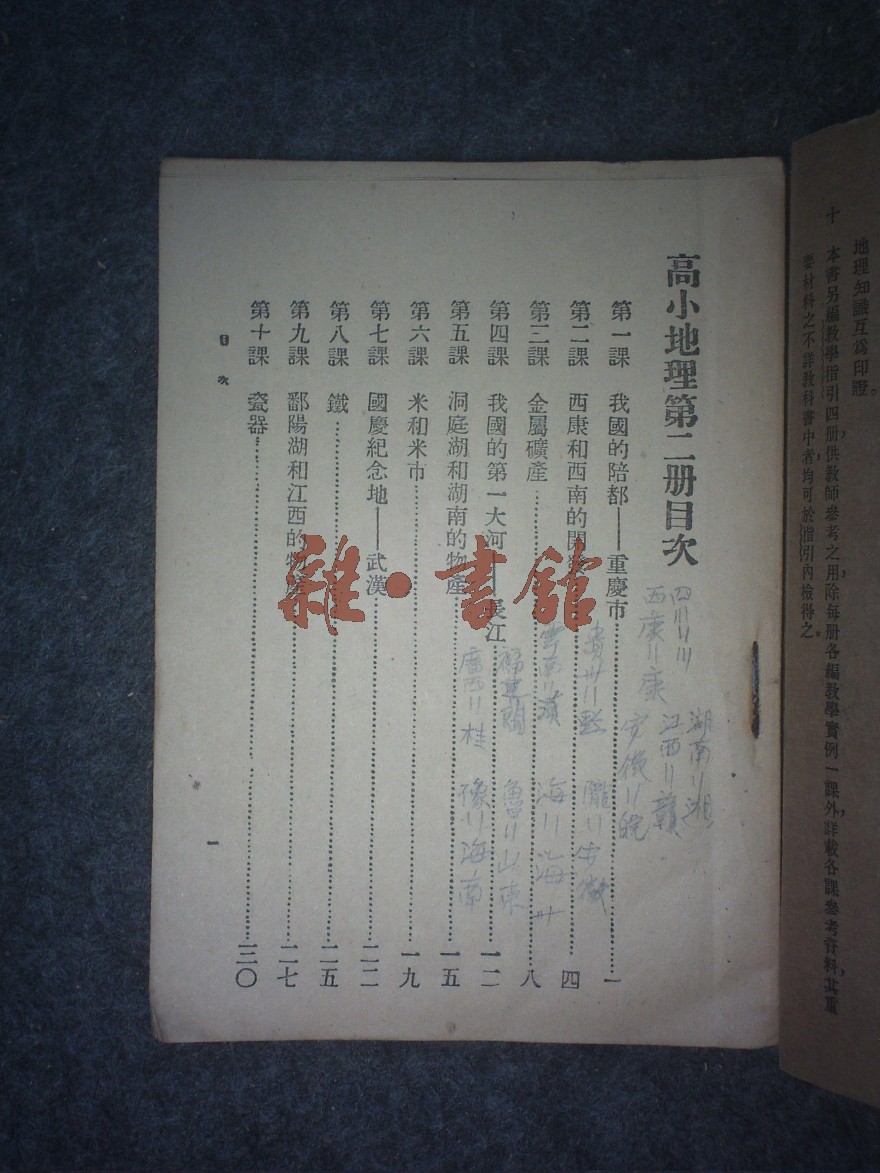 地理知識互爲印證。
十　本書另編教學指引四册，供教師參考之用，除每册各編教學實例一課外，詳載各課參考資料，其重
要材料之不詳教科書中者，均可於指引內檢得之。
高小地理第二册目次
第一課　我國的陪都——重慶市……一
第二課　西康和西南的開發……四
第三課　金屬礦產……八
第四課　我國的第一大河——長江……一二
第五課　洞庭湖和湖南的物產……一五
第六課　米和米市……一九
第七課　國慶紀念地——武漢……二二
第八課　鐵……二五
第九課　鄱陽湖和江西的物產……二七
第十課　瓷器……三〇
目次
一
湖南〃湘
四川〃川
江西〃贛
西康〃康
安徽〃皖
貴州〃黔
福建閩
魯〃山東
廣西〃桂
雜·書館